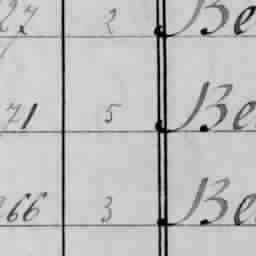 27 2 Be
71 5 Be
266 3 Be